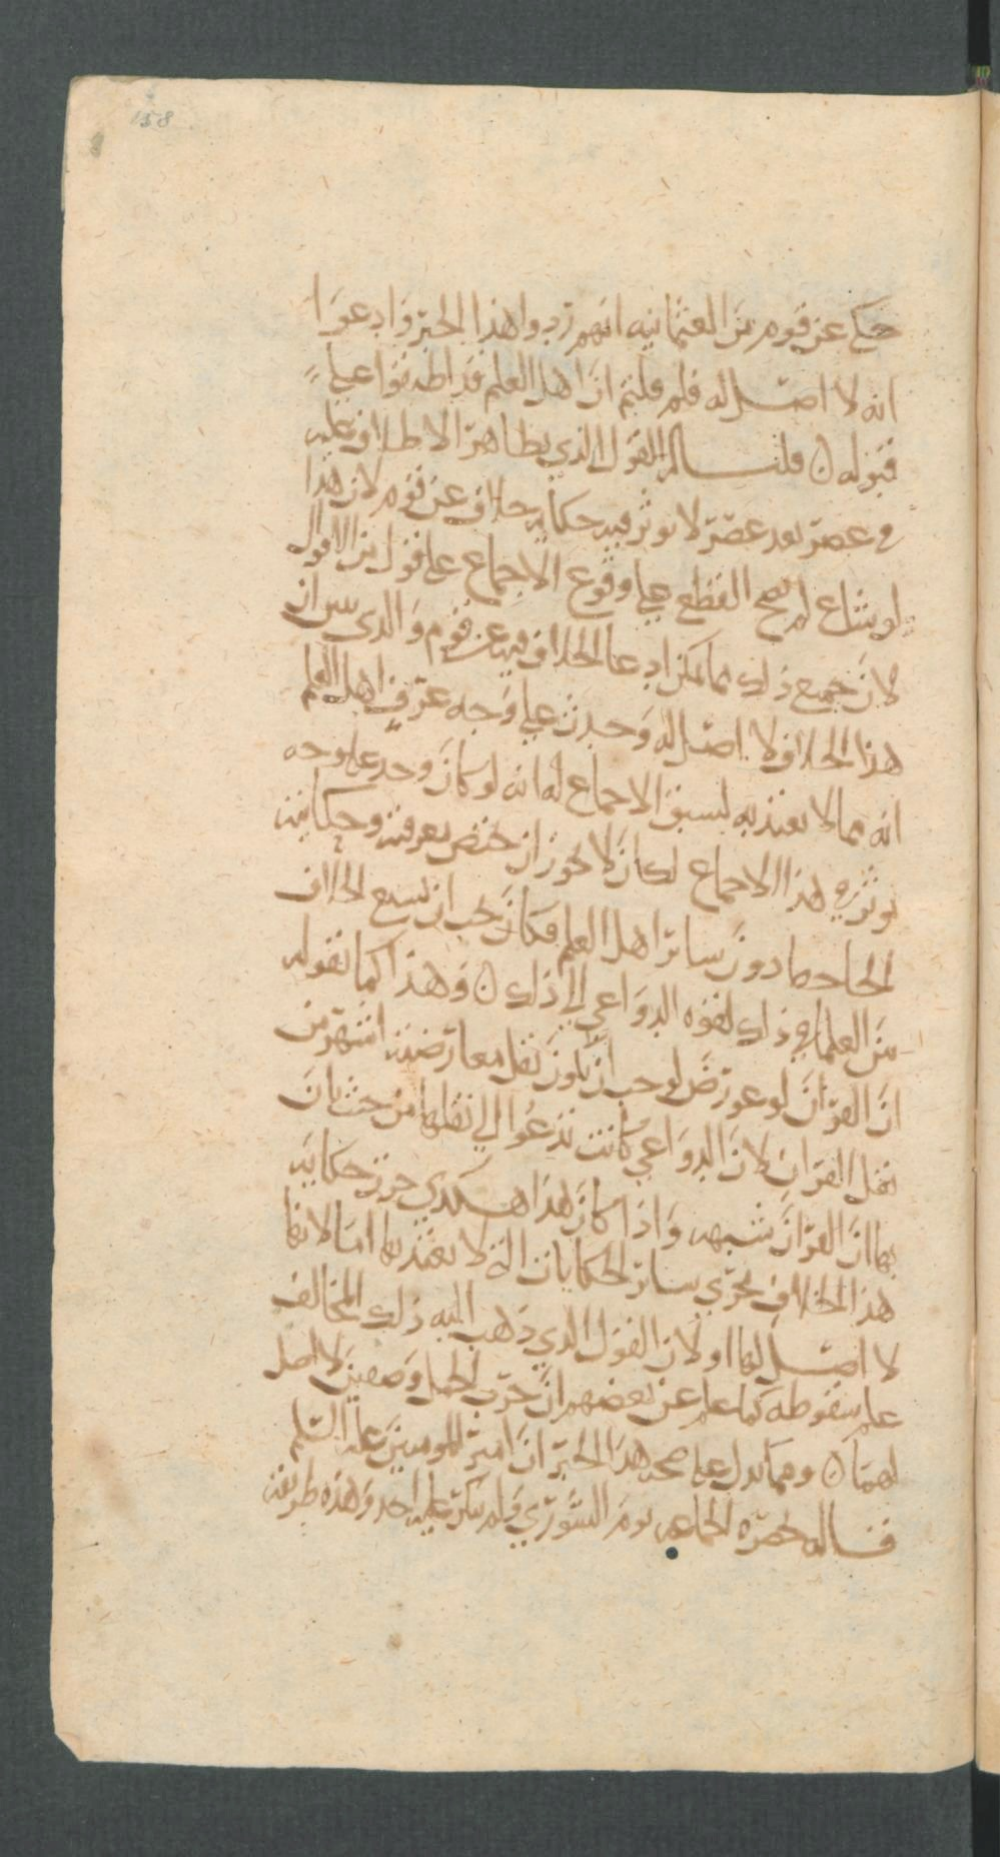 158
حكى عن قوم من العثمانيه انهم ردوا هذا الخبر وادعوا
انه لا اصل له فلم قلتم ان اهل العلم قد اطبقوا على
قبوله ن قلنا له القول الذي يظاهر الاطباق عليه
في عصر بعد عصر لا يوثر فيه حكايه خلاف عن قوم لان هذا
لو شاع لم يصح القطع على وقوع الاجماع على قول من الاقوال
لان جميع ذلك مما يمكن ادعا الخلاف فيه عن قوم والذي يبين ان
هذا الخلاف لا اصل له وحدث على وجه عرف اهل العلم
انه مما لا يعتد به لسبق الاجماع له انه لو كان وحد على وجه
يوثر في هذا الاجماع لكان لا يجوز ان يختص بمعرفته وحكايته
الجاحظ دون سائر اهل العلم فكان يجب ان يسع الخلاف
من العلما في ذلك لقوه الدواعي الى ذلك ن وهذا كما نقوله
ان القران لو عورض لوجب ان يكون نقل معارضته اشهر من
نقل القران لان الدواعي كانت تدعوا الى نقلها من حيث بان
بها ان القران شبهه واذا كان هذا هكذي جرت حكايه
هذا الخلاف مجرى سائر الحكايات التي لا يعتد بها اما لانها
لا اصل لها او لان القول الذي ذهب اليه ذلك المخالف
علم سقوطه كما علم عن بعضهم ان حرب الجمل وصفين لا اصل
لهما ن ومما يدل على صحه هذا الخبر ان امير المومنين عليه السلم
قاله بحضره الجماعه يوم الشورى ولم ينكر عليه احد وهذه طريقه